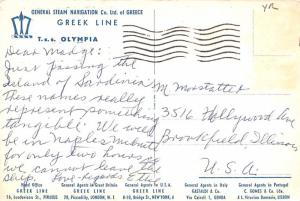 GENERAL STEAM NAVIGATION Co. Ltd. of GREECE
GREEK LINE
T.s.s. OLYMPIA
YR
Dear Madge:
Just passing the
island of Sardinia
these names really
represent something
tangible! We will
be in Naples
for only two hours
we cannot leave the
ship. Love - regards Ethel
M. Morstatter
3516 Hollywood Ave
Brookfield, Illinois
U.S.A.
Head Office
GREEK LINE
PIRAEUS
General Agents in Great Britain
GREEK LINE
PICCADILLY, LONDON, N. 1
General Agents in U.S.A.
GREEK LINE
8-10, Bridge St., NEWYORK, 4
General Agents in Italy
Via Cairoli 1, GENOA
General Agents in Portugal
LISBON 1